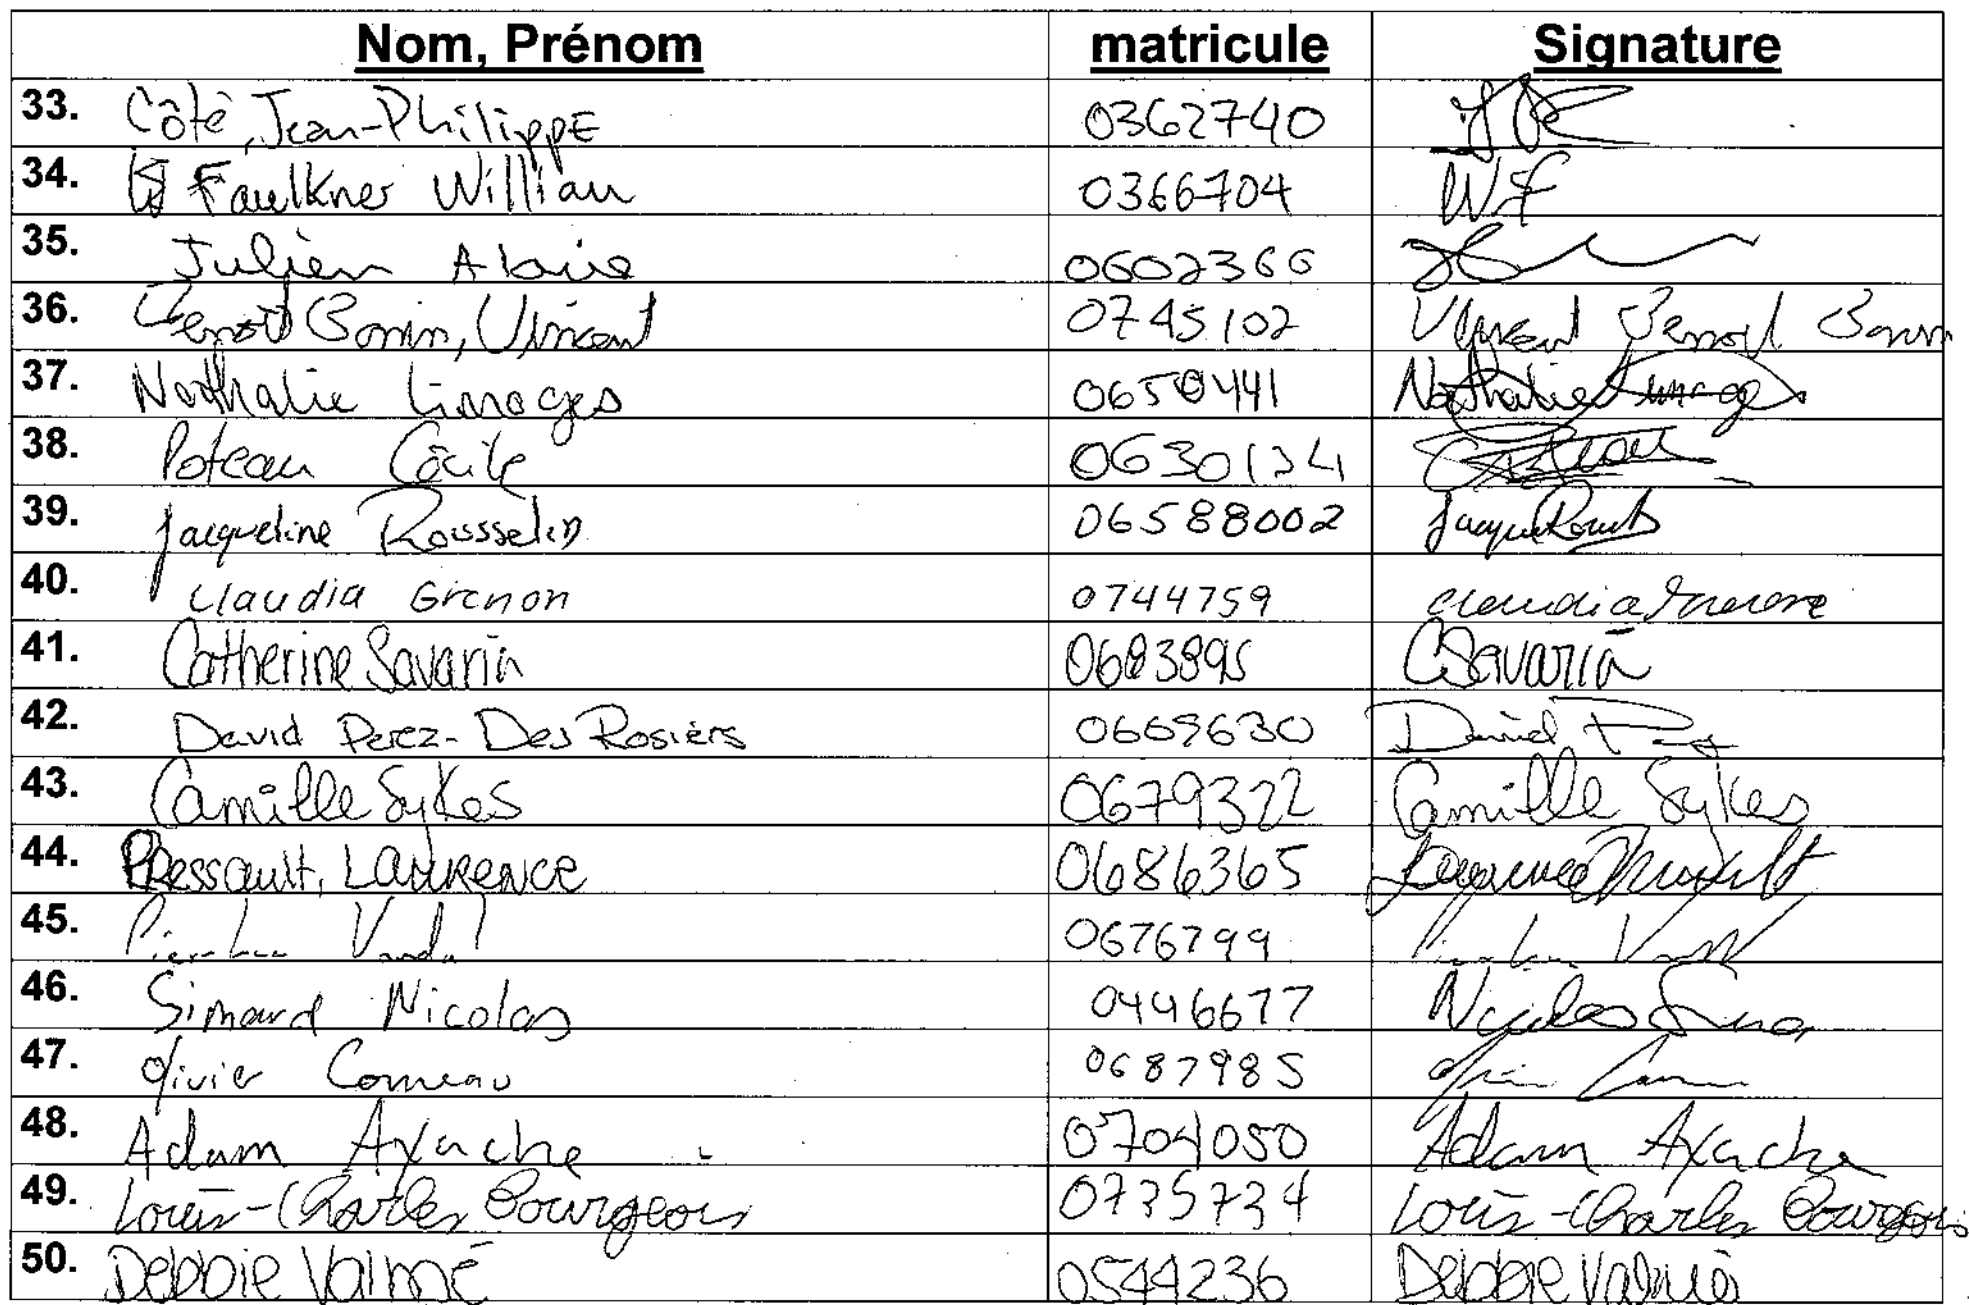 Nom, Prénom matricule Signature
33. Côté, Jean-Philippe 0362740
34. Faulkner William 0366704 WF
35. Julien Alaire 0602366
36. Benoit Bonin, Vincent 0745102 Vincent Benoit Bonin
37. Nathalie Limoges 0650441 Nathalie Limoges
38. Poteau Cécile 0630134
39. Jacqueline Rousselin 06588002
40. Claudia Grenon 0744759 Claudia Grenon
41. Catherine Savaria 0683895 CSavaria
42. David Perez-Des Rosiers 0669630 David
43. Camille Sykes 0679322 Camille Sykes
44. Pressault, Laurence 0686365 Laurence Pressault
45. Pierre-Luc 0676799
46. Simard Nicolas 0446677 Nicolas
47. Olivier Comeau 0687985
48. Adam Axache 0704050 Adam Axache
49. Louis-Charles Bourgeois 0735734 Louis-Charles Bourgeois
50. Debbie Valmé 0544236 Debbie Valmé